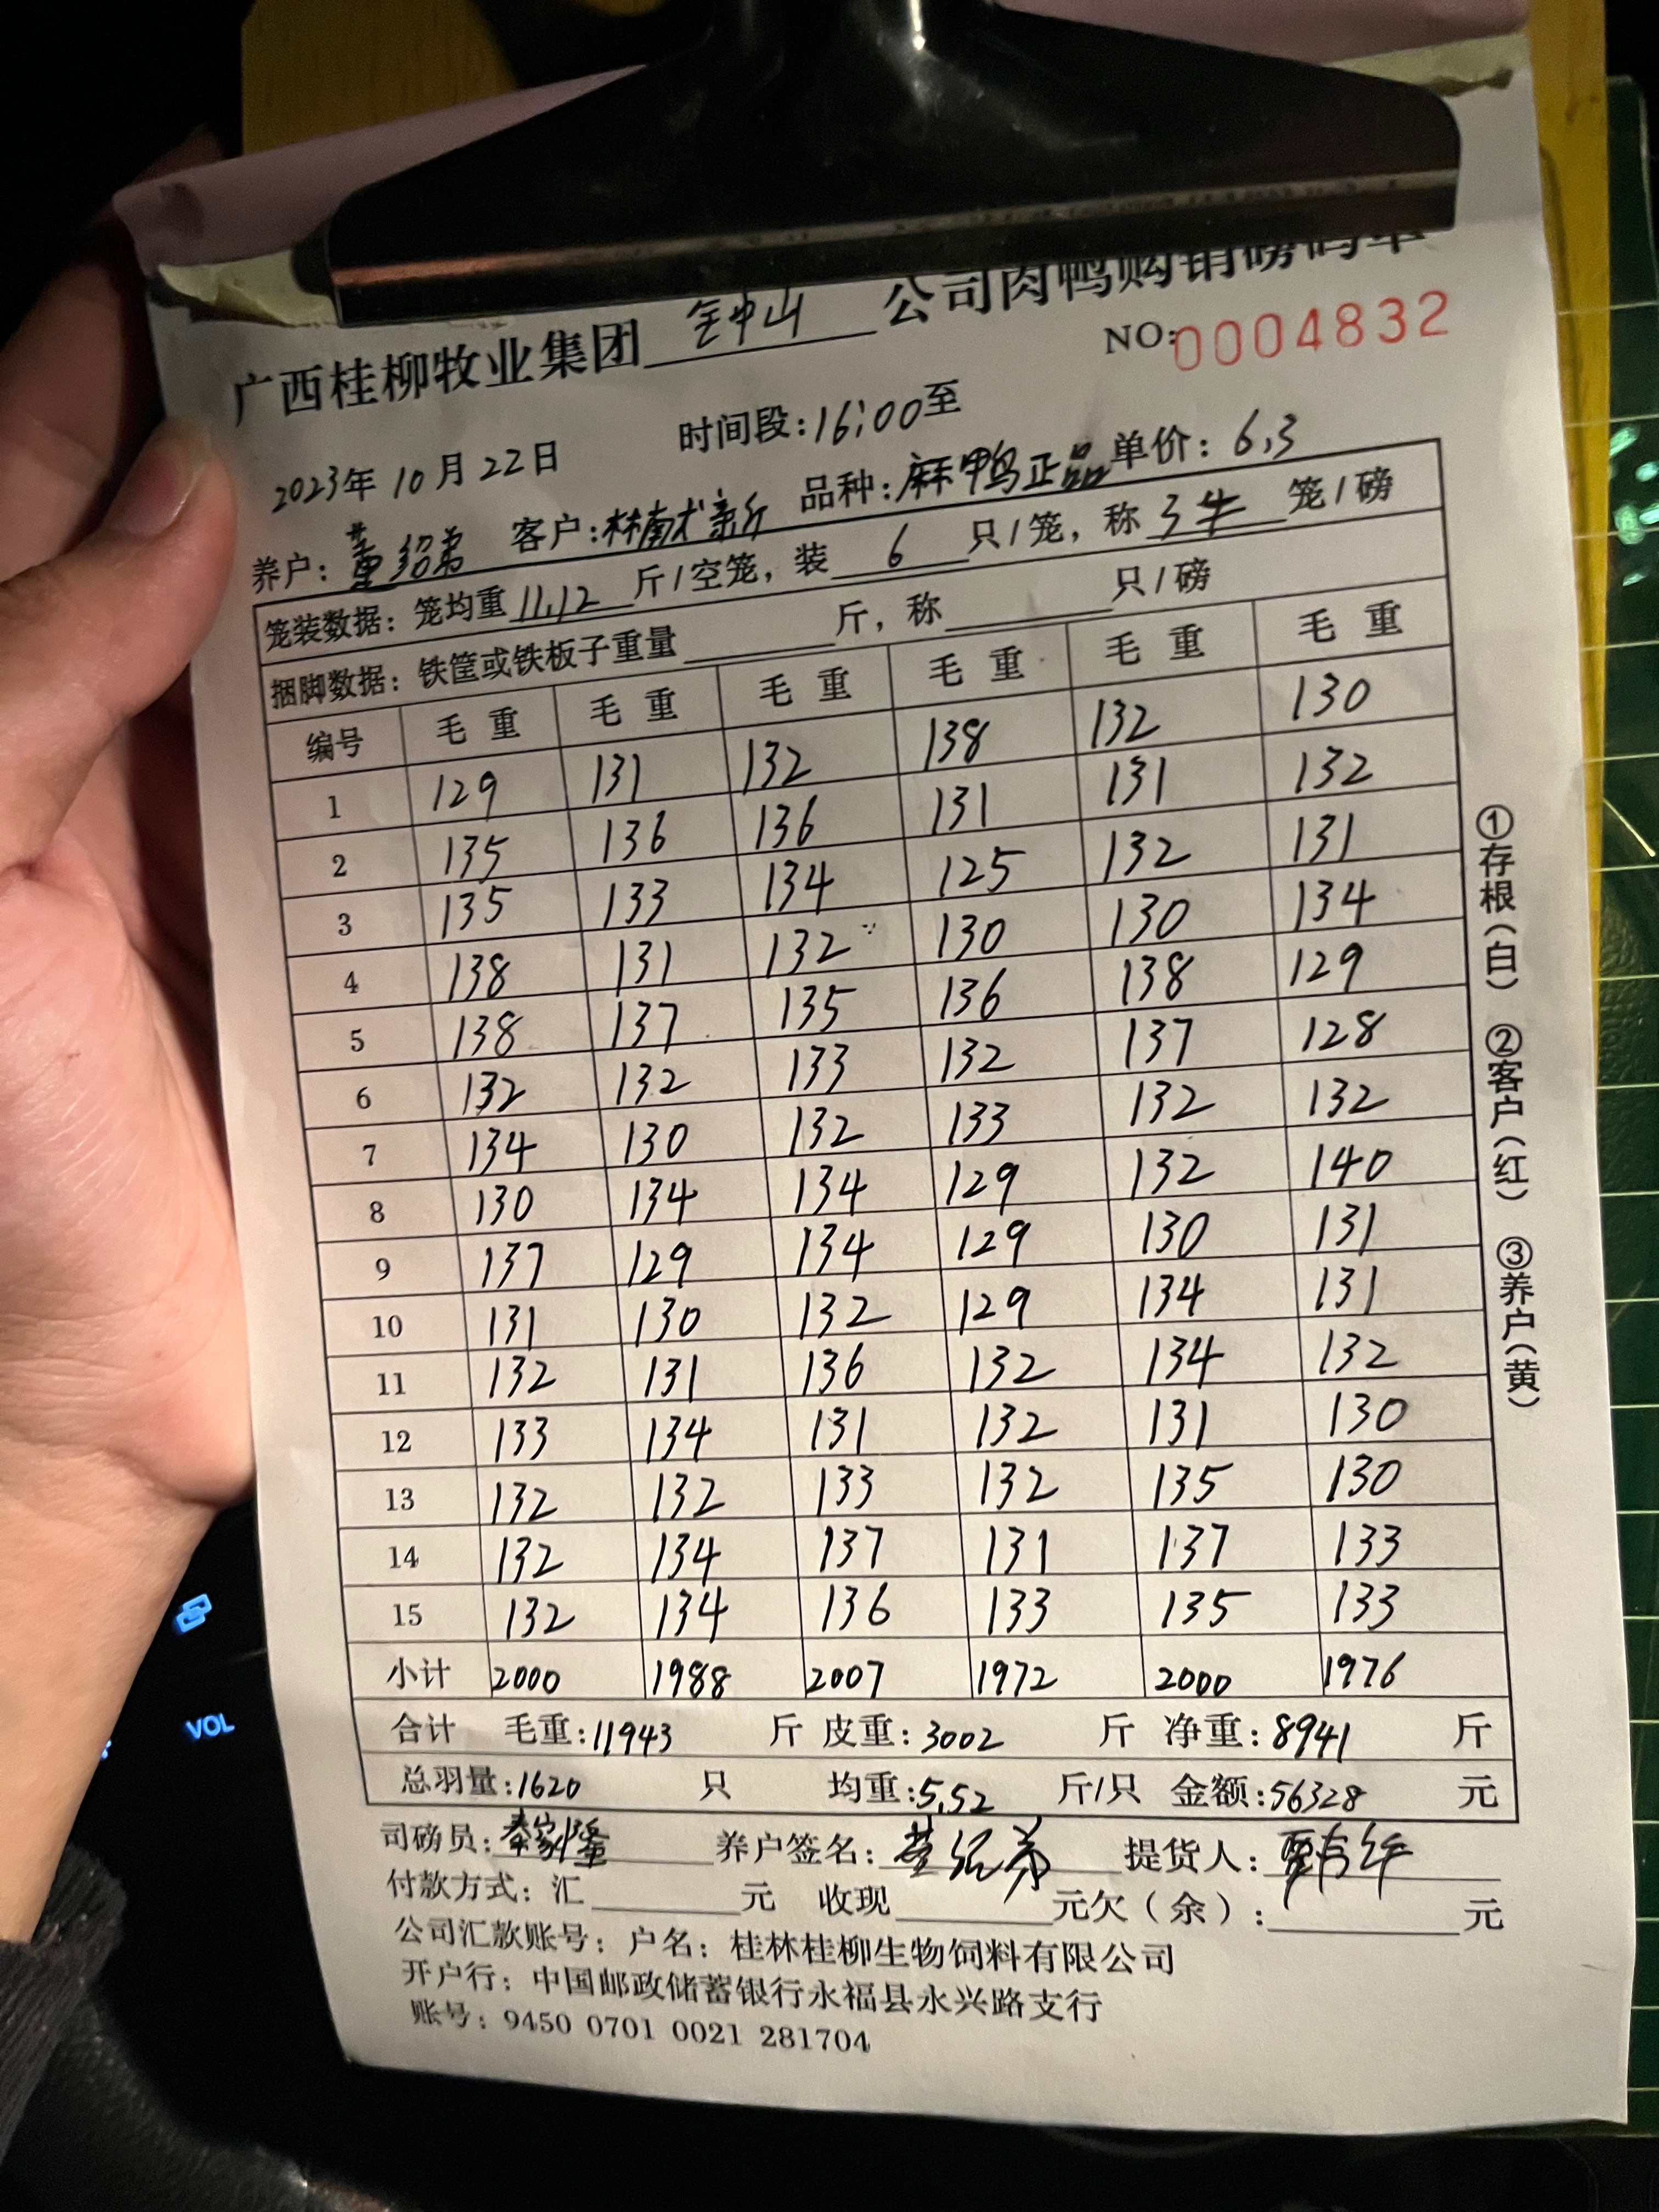 广西桂柳牧业集团 公司肉鸭购销磅码单
NO:0004832
2023年 10月 22日 时间段:16:00至
养户: 董绍弟 客户: 品种:麻鸭正品 单价: 6.3
笼装数据: 笼均重 11.12 斤/空笼, 装 6 只/笼, 称 3 笼/磅
捆脚数据: 铁筐或铁板子重量 斤, 称 只/磅
编号 毛重 毛重 毛重 毛重 毛重 毛重
1 129 131 132 138 132 130
2 135 136 136 131 131 132
3 135 133 134 125 132 131
4 138 131 132 130 130 134
5 138 137 135 136 138 129
6 132 132 133 132 137 128
7 134 130 132 133 132 132
8 130 134 134 129 132 140
9 137 129 134 129 130 131
10 131 130 132 129 134 131
11 132 131 136 132 134 132
12 133 134 131 132 131 130
13 132 132 133 132 135 130
14 132 134 137 131 137 133
15 132 134 136 133 135 133
小计 2000 1988 2007 1972 2000 1976
合计 毛重:11943 斤 皮重:3002 斤 净重:8941 斤
总羽量:1620 只 均重:5.52 斤/只 金额:56328 元
司磅员:秦家隆 养户签名:董绍弟 提货人:
付款方式: 汇 元 收现 元欠(余): 元
公司汇款账号: 户名: 桂林桂柳生物饲料有限公司
开户行: 中国邮政储蓄银行永福县永兴路支行
账号: 9450 0701 0021 281704
①存根(白) ②客户(红) ③养户(黄)
VOL